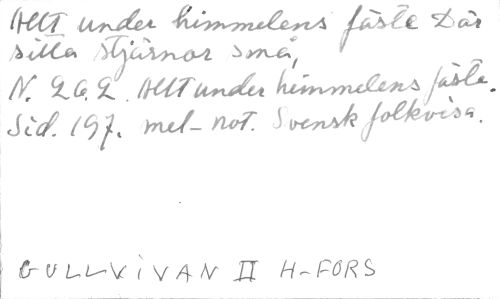 Allt under himmelens fäste Där
sitta stjärnor små,
N. 262. Allt under himmelens fäste.
Sid. 197. mel-not. Svensk folkvisa.
GULLVIVAN II H-FORS